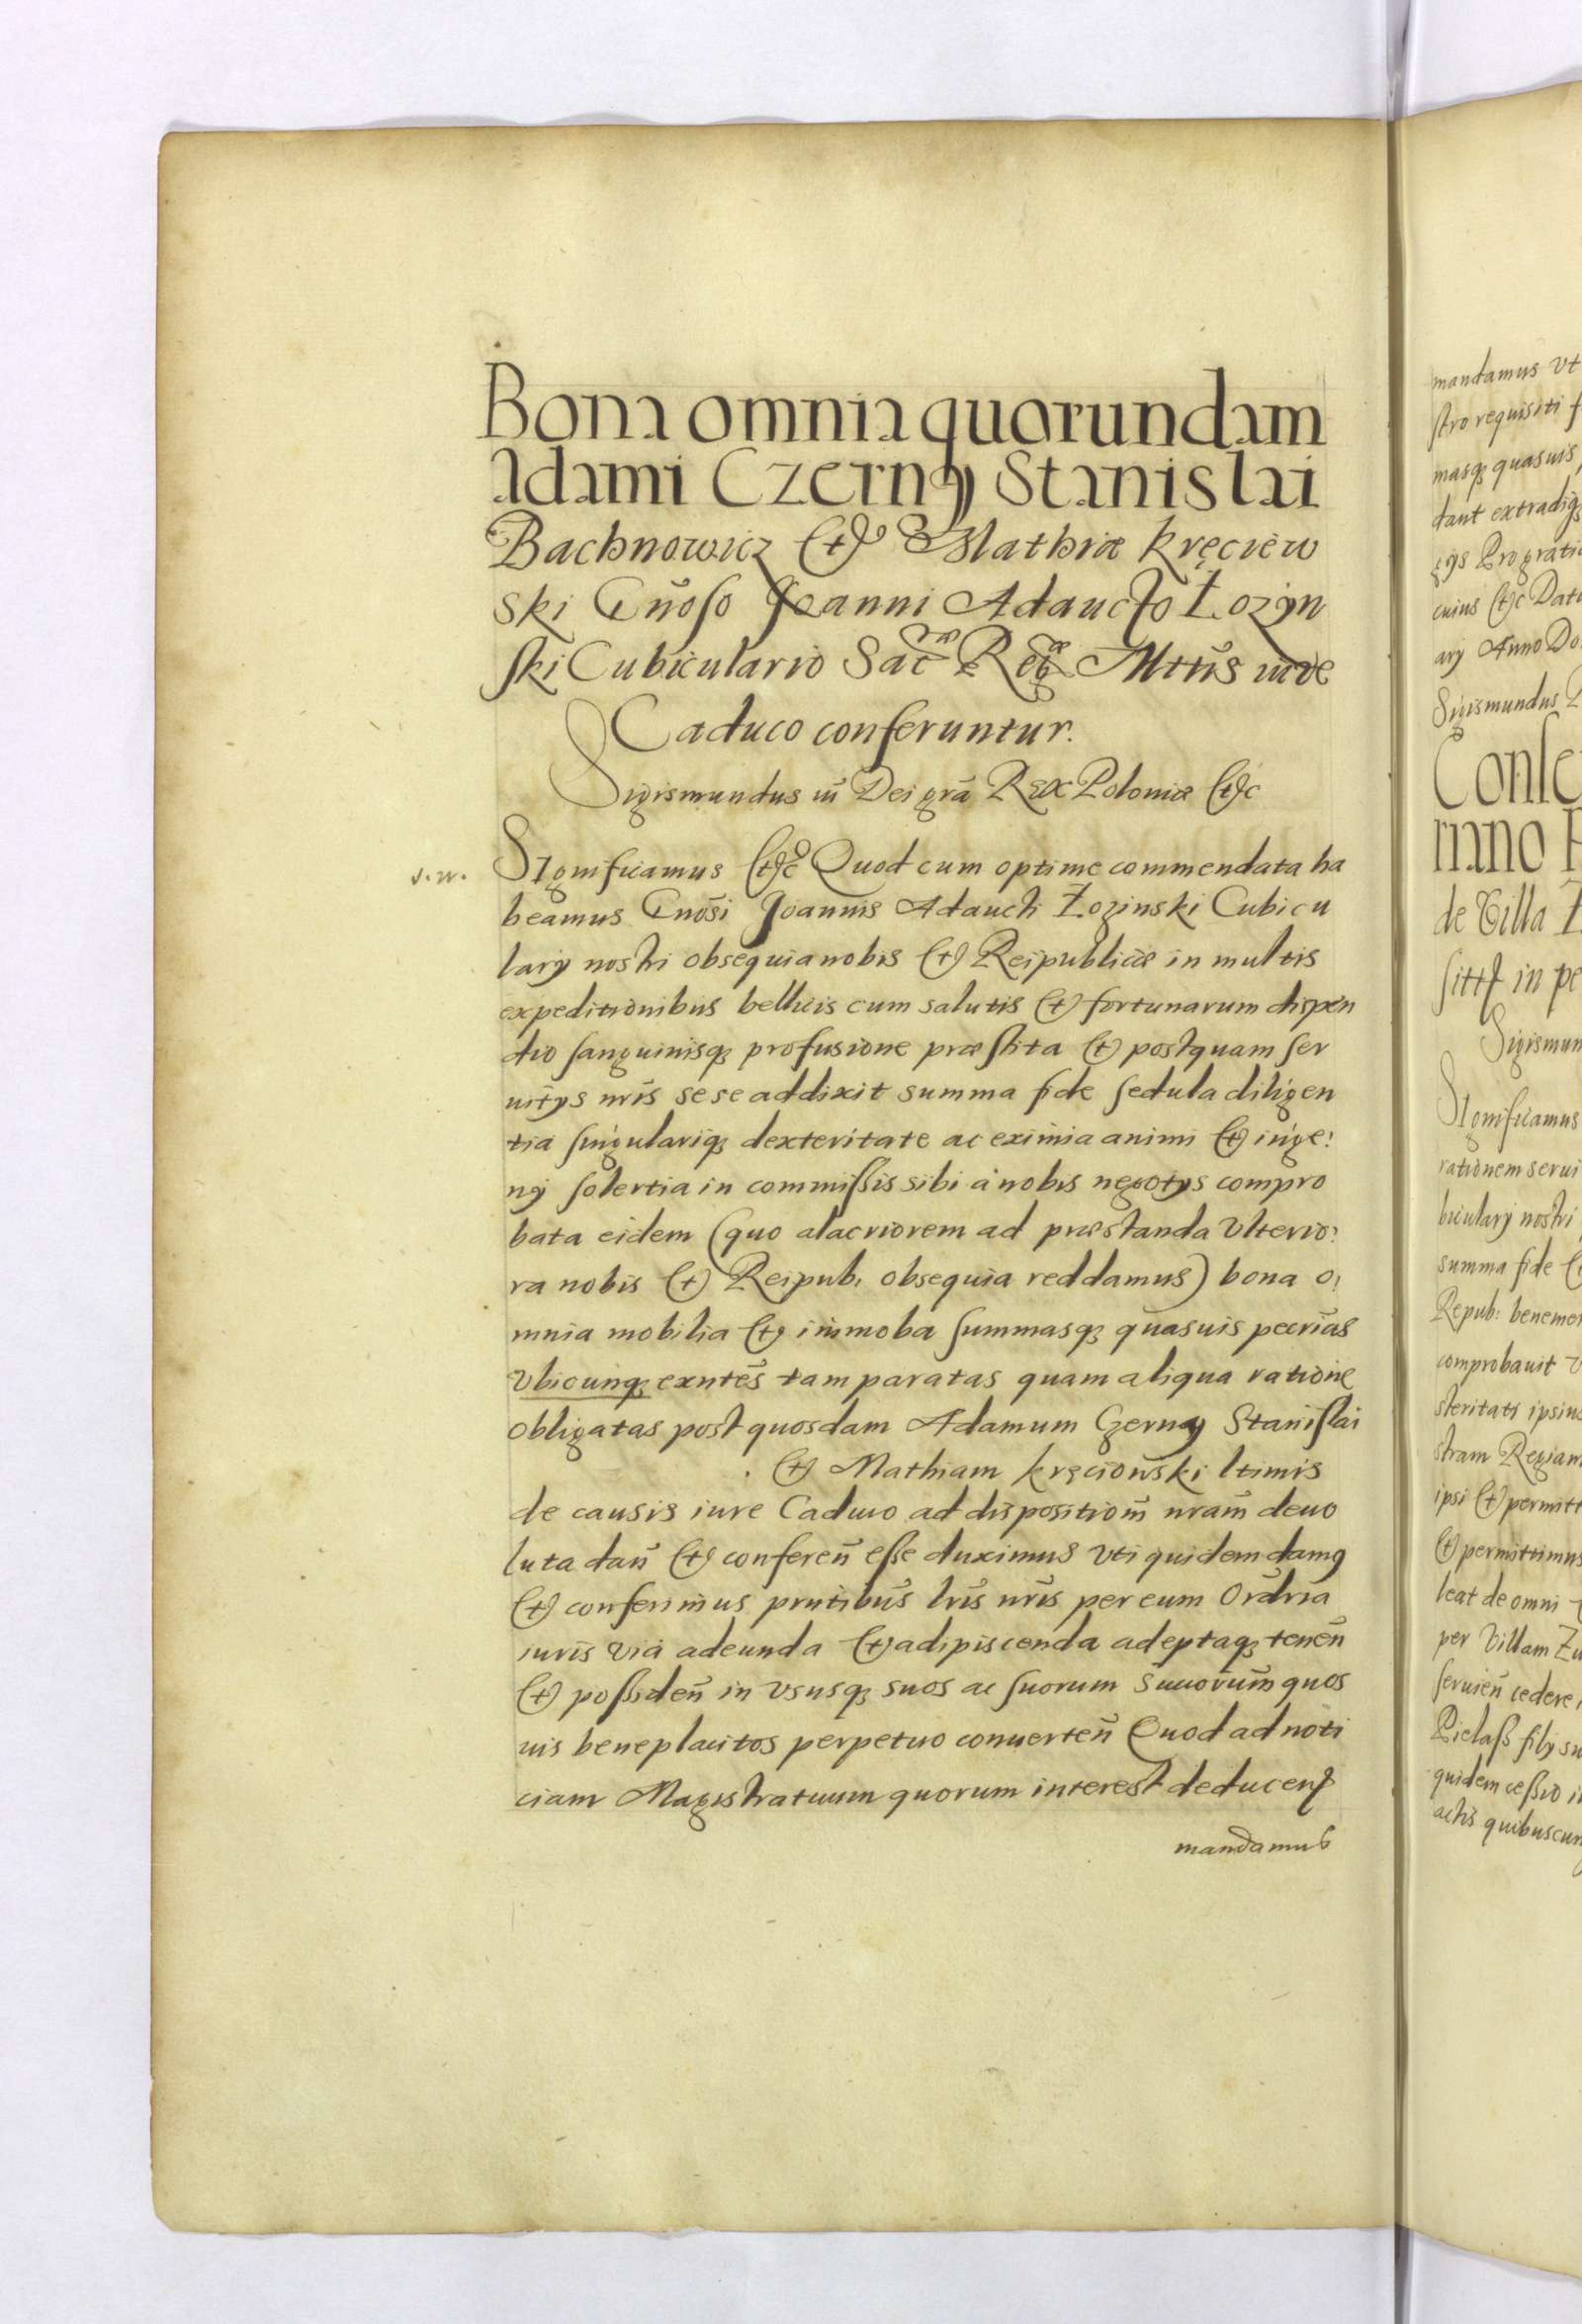 Bona omnia quorundam
Adami Czerny Stanislai
Bachnowicz et Mathiæ Kręciew
ski Gnoso Joanni Adaucto Łozyn
ski Cubiculario Sacræ Regæ Mttis iure
Caduco conferuntur.
Sigismundus iii Dei gra Rex Poloniæ etc
v. w.
Significamus etc Quod cum optime commendata ha
beamus Gnosi Joannis Adaucti Łozinski Cubicu
larij nostri obsequia nobis et Reipublicæ in multis
expeditionibus bellicis cum salutis et fortunarum dispen
dio sanguinisq profusione præstita et postquam ser
uitys nris sese addixit summa fide sedula diligen
tia singulariq dexteritate ac eximia animi et inge:
nij solertia in commissis sibi à nobis negotys compro
bata eidem (quo alacriorem ad præstanda Vlterio:
ra nobis et Reipub. obsequia reddamus) bona o:
mnia mobilia et immoba summasq quasuis pecrias
Vbicunq exntes tam paratas quam aliqua ratione
obligatas post quosdam Adamum Czerny Stanislai
et Mathiam Kręciowski ltimis
de causis iure Caduco ad dispositiom nram deuo
luta dan et conferen esse duximus Vti quidem damg
et conferimus pntibus lris nris per eum Ordria
iuris Via adeunda et adipiscenda adeptaq tenen
et possiden in Vsusq suos ac suorum Succorum quos
uis beneplacitos perpetuo conuerten Quod ad noti
ciam Magistratuum quorum interest deducen
mandamus
mandamus Vt
stro requisiti
masq quasuis
dant extradiq
gys Pro gratia
cuius etc Dat
arij Anno Do
Sigismundus
Conse
mano
de Villa
in pe
Sigismun
Significamus
rationem serui
bicularij nostri
summa fide
Repub: benemer
comprobauit
steritati ipsius
stram Regiam
ipsi et permitt
et permittimus
leat de omni
per Villam
seruien cedere
Pielass filij su
quidem cessio i
actis quibuscun